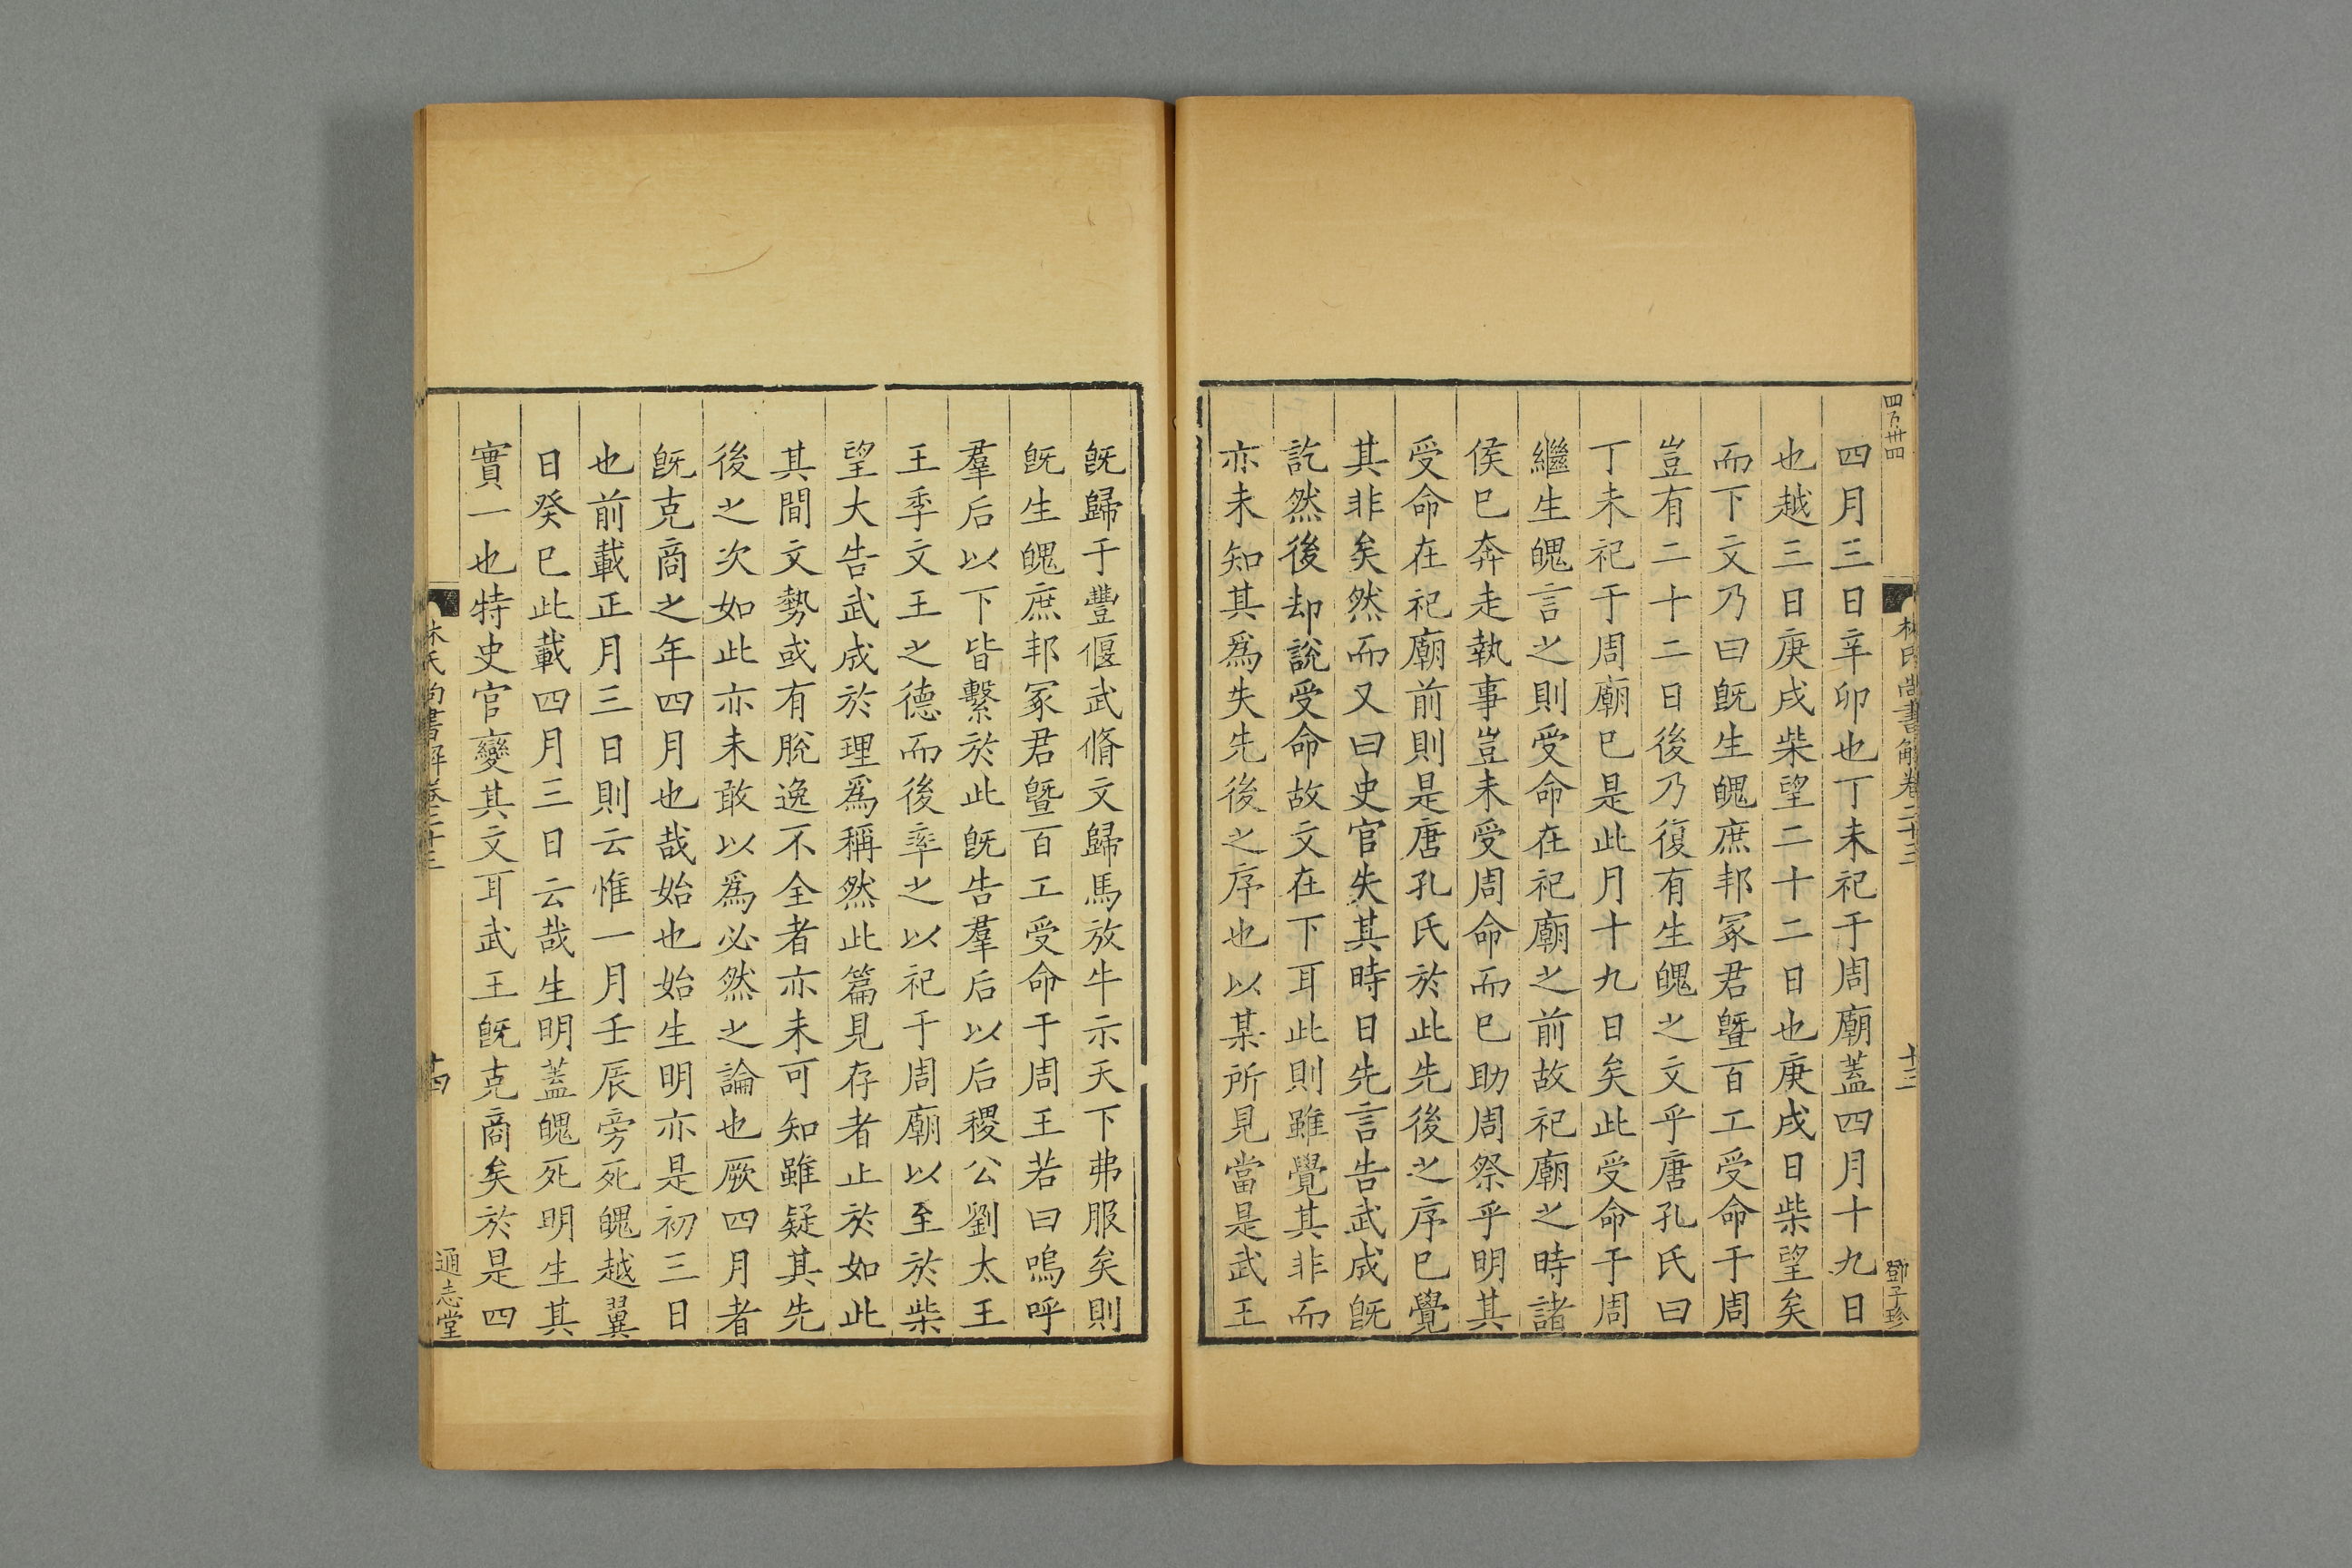 四月三日辛卯也丁未祀于周廟蓋四月十九日
也越三日庚戌柴望二十二日也庚戌日柴望矣
而下文乃曰旣生魄庶邦冢君曁百工受命于周
豈有二十二日後乃復有生魄之文乎唐孔氏曰
丁未祀于周廟巳是此月十九日矣此受命于周
繼生魄言之則受命在祀廟之前故祀廟之時諸
侯巳奔走執事豈未受周命而巳助周祭乎明其
受命在祀廟前則是唐孔氏於此先後之序巳覺
其非矣然而又曰史官失其時日先言告武成旣
訖然後却說受命故文在下耳此則雖覺其非而
亦未知其爲失先後之序也以某所見當是武王
林氏尚書解卷二十三
十三
鄧子珍
旣歸于豐偃武脩文歸馬放牛示天下弗服矣則
旣生魄庶邦冢君曁百工受命于周王若曰嗚呼
羣后以下皆繫於此旣告羣后以后稷公劉太王
王季文王之德而後率之以祀于周廟以至於柴
望大告武成於理爲稱然此篇見存者止於如此
其間文勢或有脫逸不全者亦未可知雖疑其先
後之次如此亦未敢以爲必然之論也厥四月者
旣克商之年四月也哉始也始生明亦是初三日
也前載正月三日則云惟一月壬辰旁死魄越翼
日癸巳此載四月三日云哉生明蓋魄死明生其
實一也特史官變其文耳武王旣克商矣於是四
林氏尚書解卷二十三
十四
通志堂